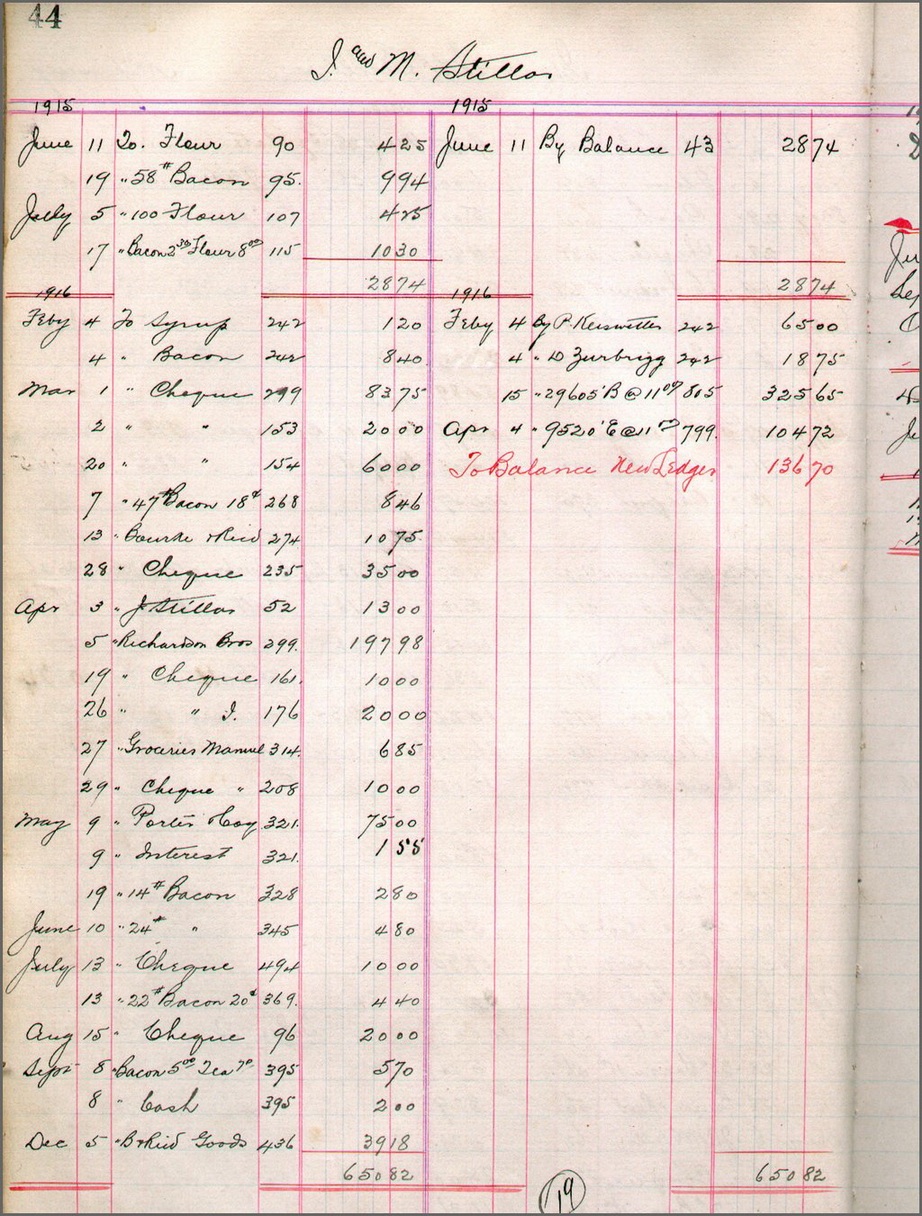 44
J. and M. Stillas
1915 1915
June 11 To. Flour 90 425 June 11 By Balance 43 2874
19 " 58# Bacon 95. 994
July 5 " 100 Flour 107 425
17 " Bacon 2 30 Flour 8 00 115 1030
2874 2874
1916 1916
Feby 4 To Syrup 242 120 Feby 4 By P. 242 6500
4 " Bacon 242 840 4 " D Zurbrigg 242 1875
Mar 1 " Cheque 299 8375 15 " 29605 B @ 11 00 805 32565
2 " " 153 2000 Apr 4 " 9520 E @ 11 00 799. 10472
20 " " 154 6000 To Balance New Ledger 13670
7 " 47# Bacon 18¢ 268 846
13 " Bourke & Reid 274 1075
28 " Cheque 235 3500
Apr 3 " J Stillas 52 1300
5 " Richardson Bros 299. 19798
19 " Cheque 161. 1000
26 " " J. 176 2000
27 " Groceries Manuel 314. 685
29 " Cheque " 208 1000
May 9 " Porter Hay 321. 7500
9 " Interest 321. 155
19 " 14# Bacon 328 280
June 10 " 24# " 345 480
July 13 " Cheque 494 1000
13 " 22# Bacon 20¢ 369. 440
Aug 15 " Cheque 96 2000
Sept 8 " Bacon 5 00 Tea 70 395 570
8 " Cash 395 200
Dec 5 " B & Reid Goods 436 3918
65082 65082
19